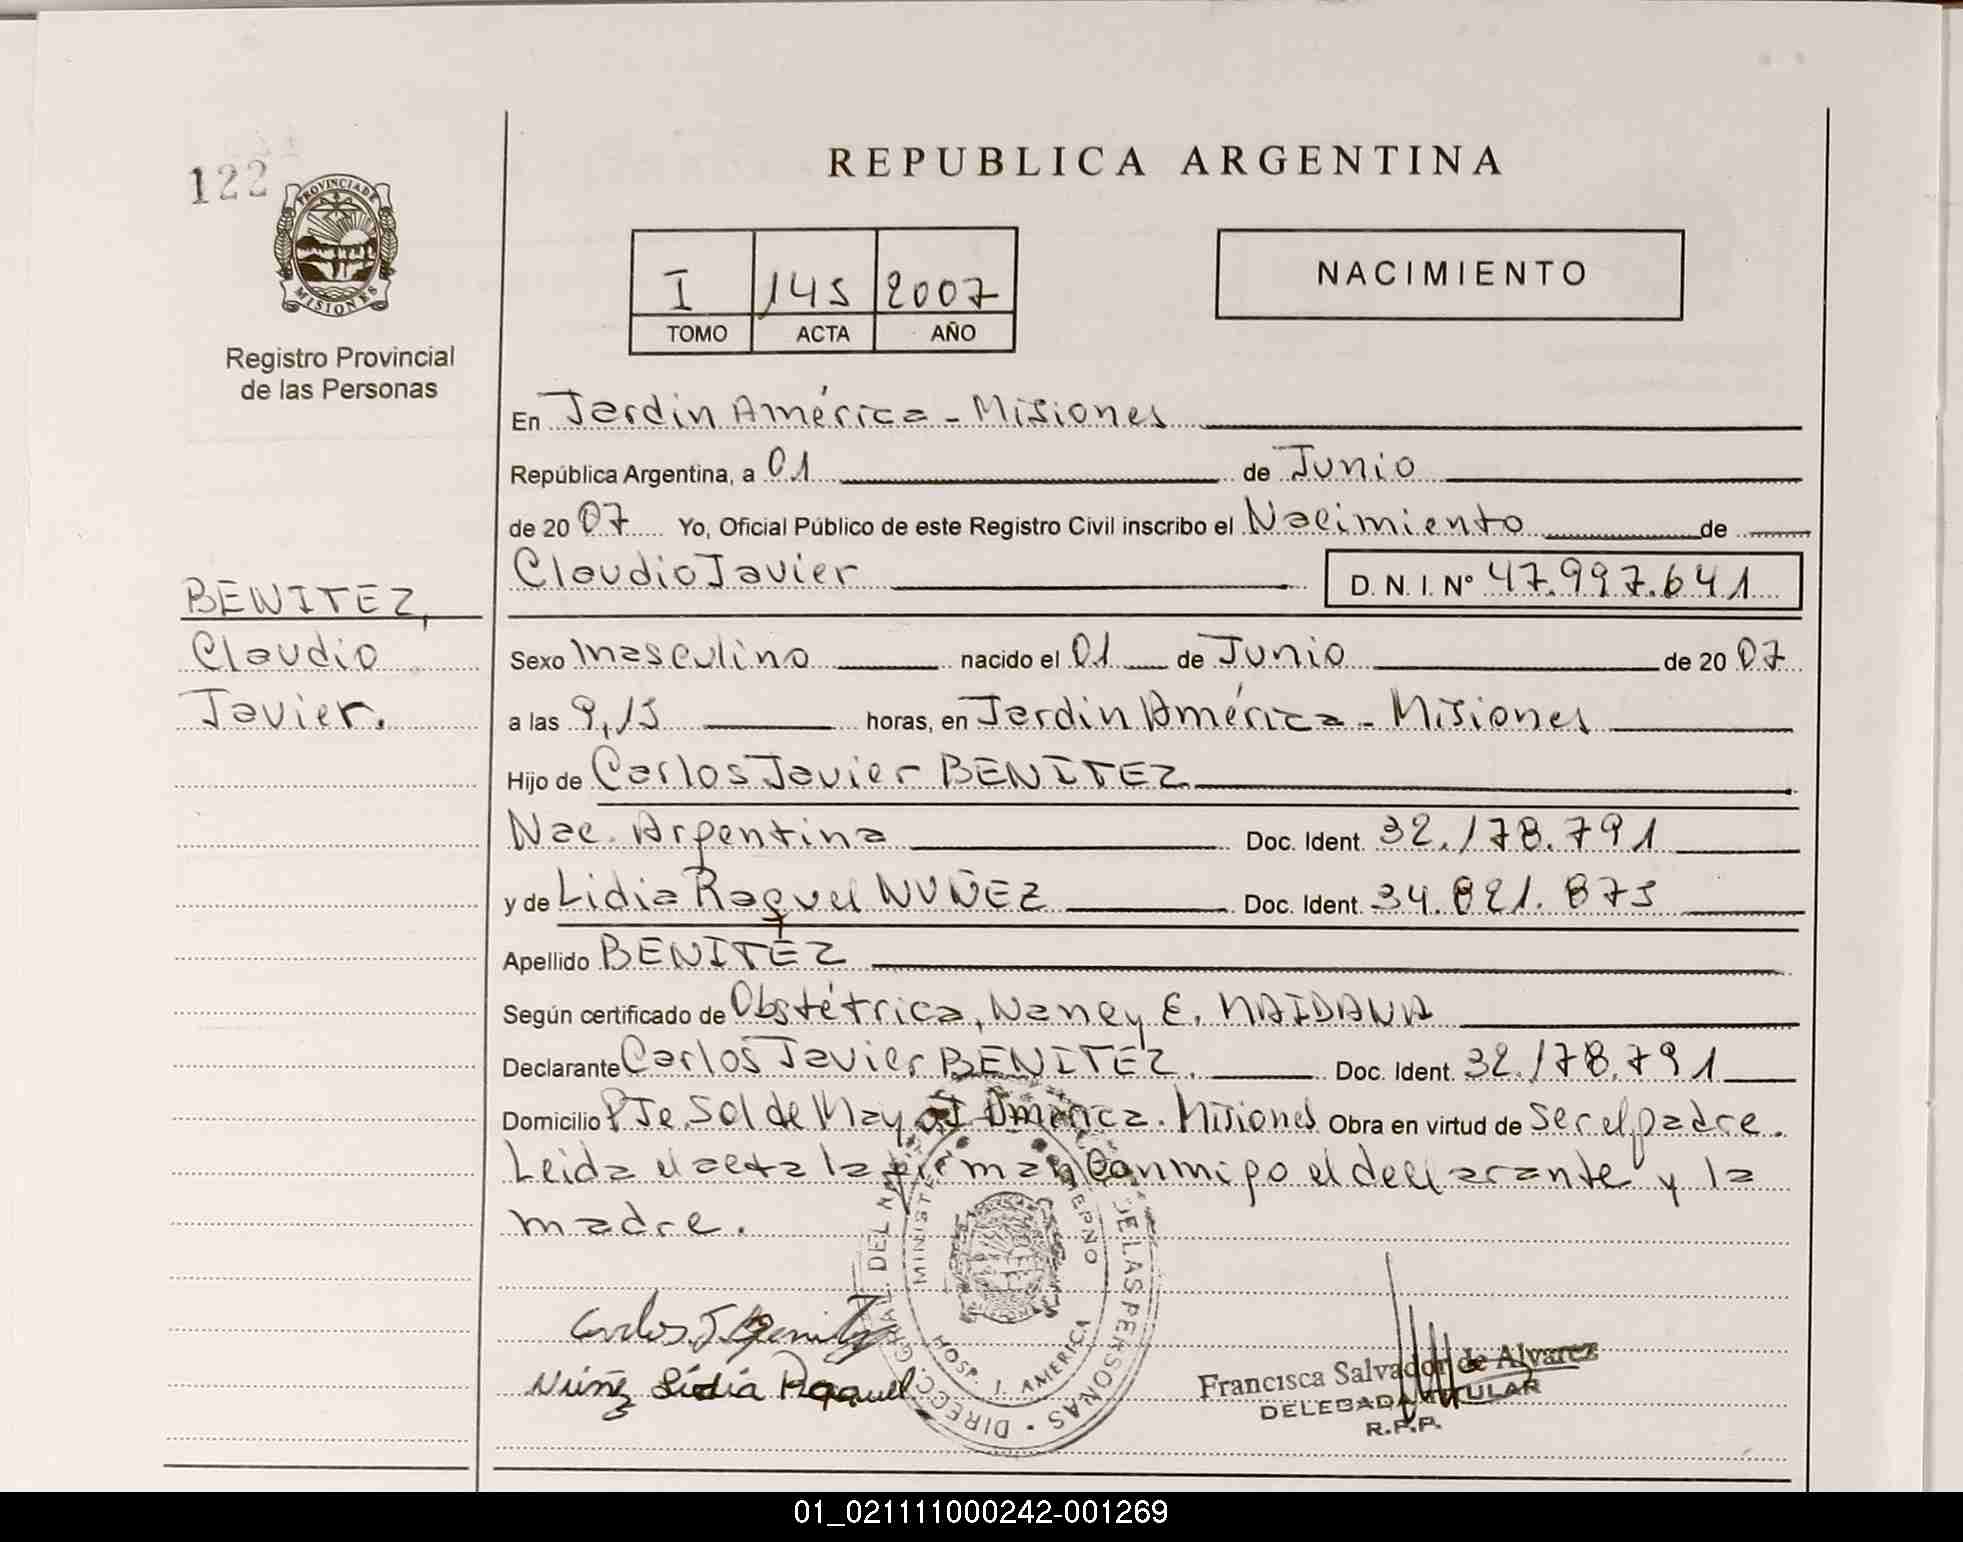 122
PROVINCIA DE
MISIONES
Registro Provincial
de las Personas
REPUBLICA ARGENTINA
I 145 2007
TOMO ACTA AÑO
NACIMIENTO
En Jardin América - Misiones
República Argentina, a 01 de Junio
de 2007 Yo, Oficial Público de este Registro Civil inscribo el Nacimiento de
Claudio Javier D. N. I. Nº 47.997.641
BENITEZ,
Claudio
Javier.
Sexo masculino nacido el 01 de Junio de 2007
a las 9,15 horas, en Jardin América - Misiones
Hijo de Carlos Javier BENITEZ
Nac. Argentina Doc. Ident. 32.178.791
y de Lidia Raquel NUÑEZ Doc. Ident. 34.821.873
Apellido BENITEZ
Según certificado de Obstétrica, Nancy E. MAIDANA
Declarante Carlos Javier BENITEZ. Doc. Ident. 32.178.791
Domicilio Pje. Sol de Mayo J. América. Misiones Obra en virtud de ser el padre.
Leida el acta la firman conmigo el declarante y la
madre.
Carlos J. Benitez
Núñez Lidia Raquel
DIRECC. GRAL. DEL DE LAS PERSONAS
HOSP. J. AMERICA
Francisca Salvador de Alvarez
DELEGADA TITULAR
R.P.P.
01_021111000242-001269